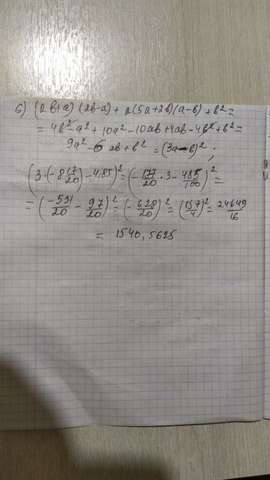 б) (2b+a)(2b-a) + 2(5a+2b)(a-b) + b² =
= 4b² - a² + 10a² - 10ab + 4ab - 4b² + b² =
9a² - 6ab + b² = (3a-b)² ;
(3·(-8 17/20) - 4,85)² = (-177/20 · 3 - 485/100)² =
= (-531/20 - 97/20)² = (-628/20)² = (157/4)² = 24649/16
= 1540,5625